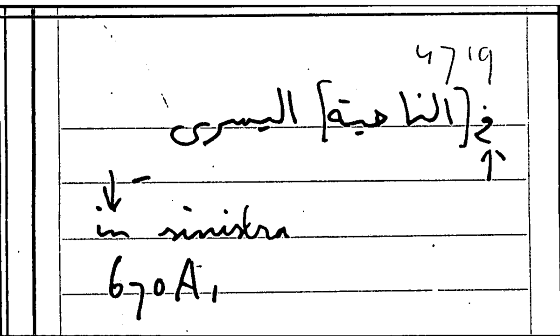 4719
في [الناحية] اليسرى
in sinistra
670A,